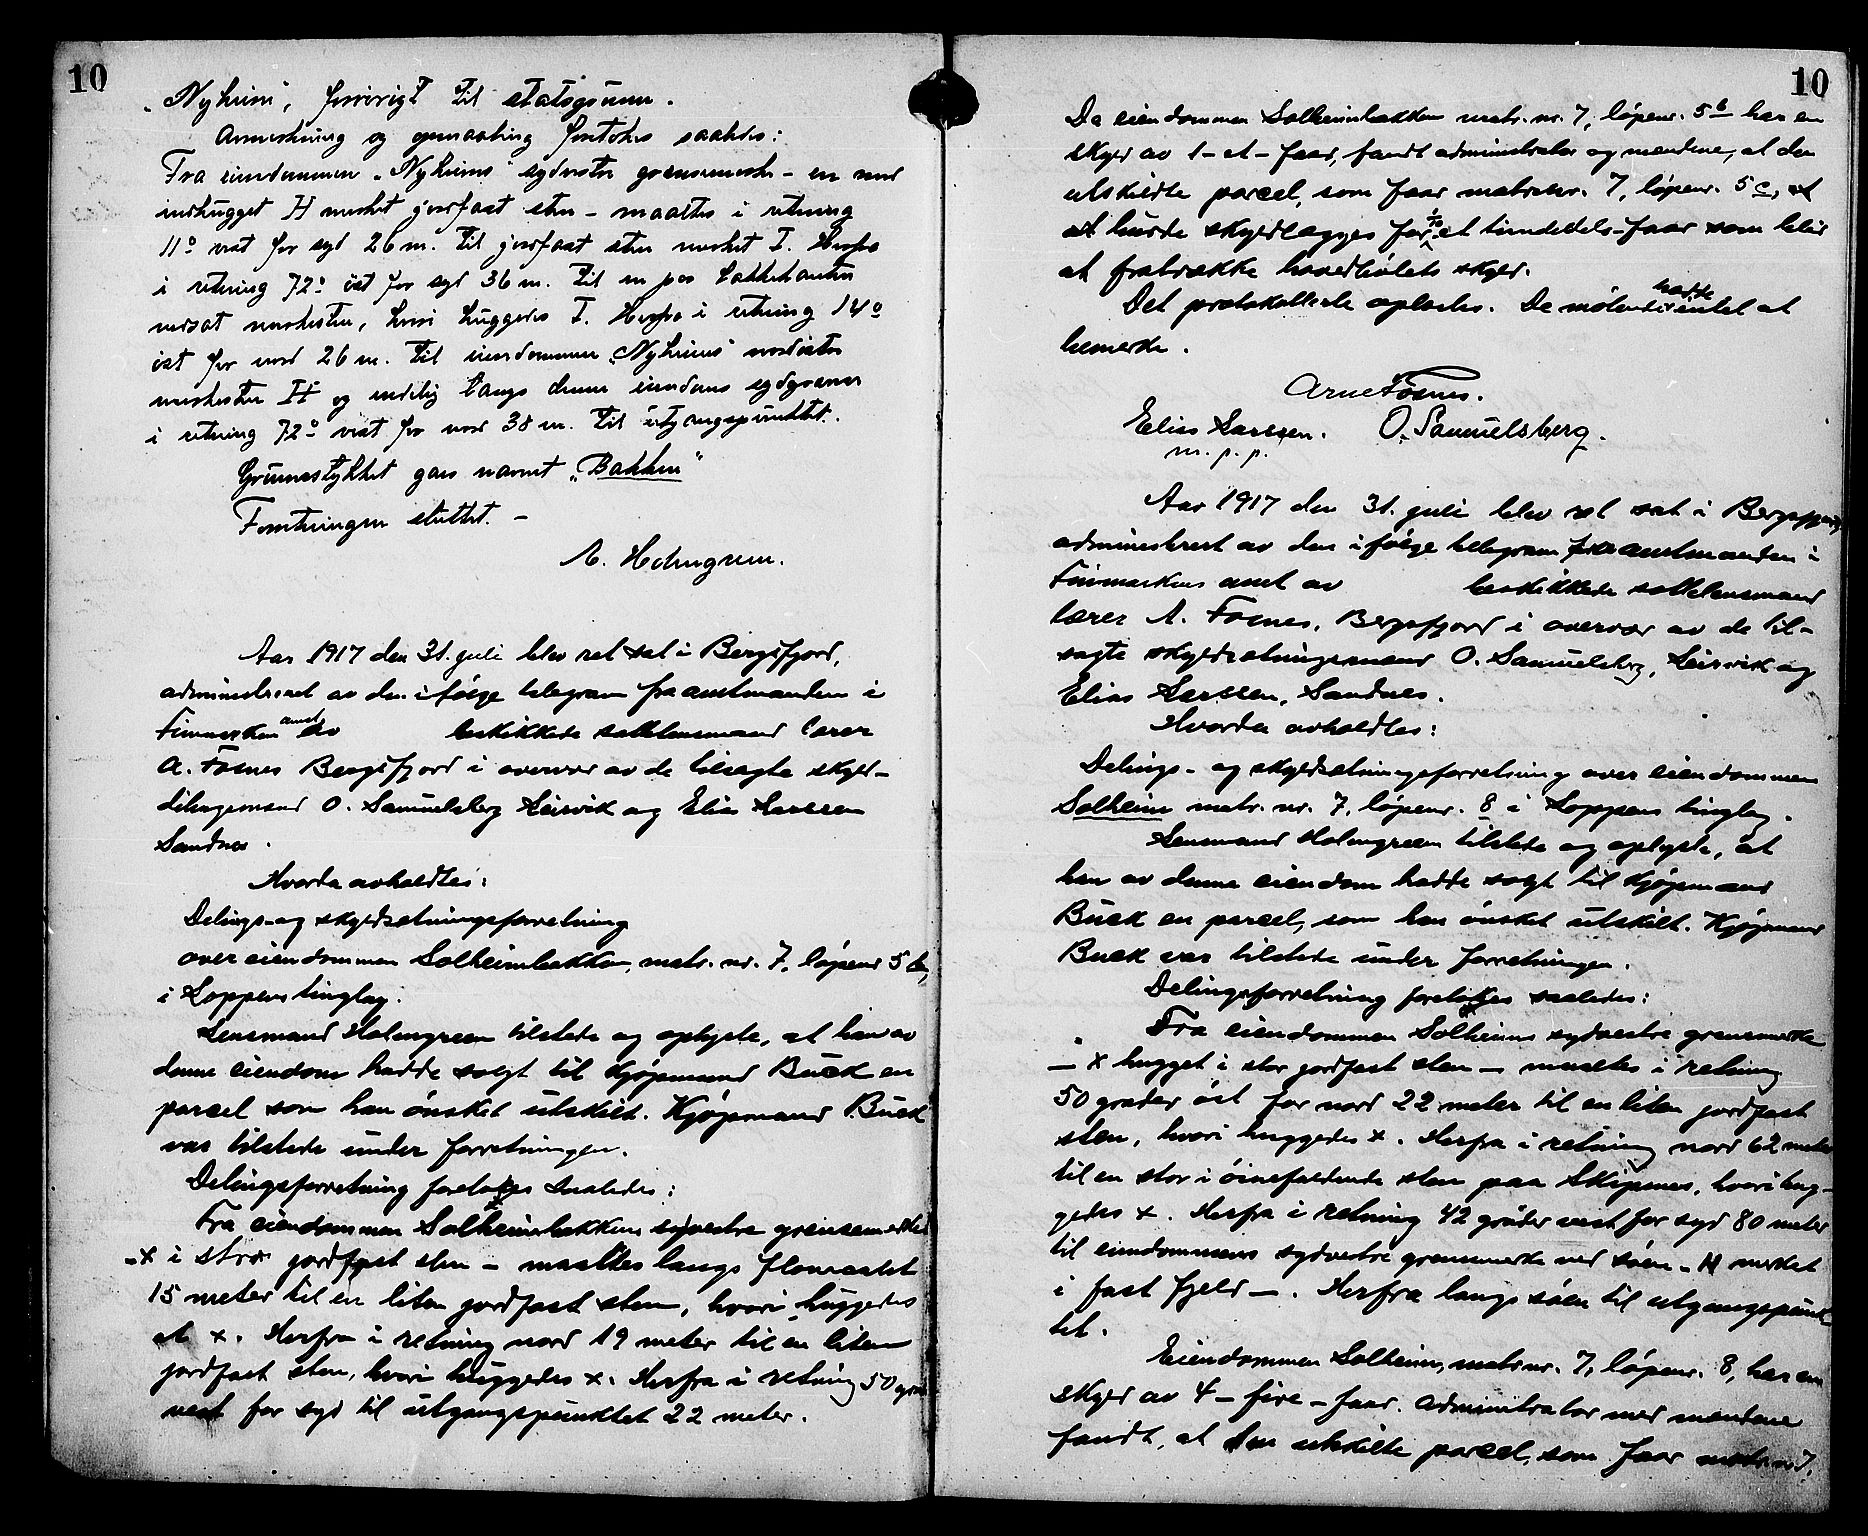 10
"Nyheim", forøvrigt til statsgrunn.
Anmerkning og opmaaling foretokes saaledes:
Fra eiendommen "Nyheims" sydøstre grænsemerke – en med
indhugget H merket jordfast sten – maaltes i retning
11° vest for syd 26 m. til jordfast sten merket I. Herfra
i retning 72° øst for syd 36 m. til en paa bakkekanten
nedsat merkesten, hvori huggedes I. Herfra i retning 14°
øst for nord 26 m. til eiendommen "Nyheims" nordøstre
merkesten H og endelig langs denne eiendoms sydgrænse
i retning 72° vest for nord 38 m. til utgangspunktet.
Grunnestykket gaves navnet "Bakken"
Forretningen sluttet. –
A. Holmgreen.
Aar 1917 den 31. juli blev ret sat i Bergsfjord,
administreret av den ifølge telegram fra amtmanden i
Finmarken amt av beskikkede sættelensmand lærer
A. Fosnes Bergsfjord i overvær av de tilsagte skyld-
delingsmænd O. Samuelsberg Leirvik og Elias Larssen
Sandnes.
Hvorda avholdtes:
Delings- og skyldsetningsforretning
over eiendommen Solheimbakken, matr. nr. 7, løpenr 5 b,
i Loppens tinglag.
Lensmand Holmgreen tilstede og oplyste, at han av
denne eiendom hadde solgt til Kjøpmand Buck en
parcel som han ønsket utskilt. Kjøpmand Buck
var tilstede under forretningen.
Delingsforretning foretokes saaledes:
Fra eiendommen Solheimbakkens sydvestre grensemerke
– x i stor jordfast sten – maaltes langs flomaalet
15 meter til en liten jordfast sten, hvori huggedes
et x. Herfra i retning nord 19 meter til en liten
jordfast sten, hvori huggedes x. Herfra i retning 50 grader
vest for syd til utgangspunktet 22 meter.
10
Da eiendommen Solheimbakken matr. nr. 7, løpenr. 5 b har en
skyld av 1 – et – faar, fandt administrator og mændene, at den
utskildte parcel, som faar matrnr. 7, løpenr. 5 c, et
at burde skyldlægges for 1/10 et tiendedels-faar som blir
at fratrække hovedbølets skyld.
Det protokollerte oplæstes. De møtende hadde intet at
bemerke.
Arne Fosnes.
Elias Larssen. O. Samuelsberg.
m. p. p.
Aar 1917 den 31. juli blev ret sat i Bergsfjord,
administrert av den ifølge telegram fra amtmanden i
Finmarkens amt av beskikkede sættelensmand
lærer A. Fosnes, Bergsfjord i overvær av de til-
sagte skyldsetningsmænd O. Samuelsberg, Leirvik og
Elias Larssen, Sandnes.
Hvorda avholdtes:
Delings- og skyldsetningsforretning over eiendommen
Solheim matr. nr. 7, løpenr. 8 i Loppens tinglag.
Lensmand Holmgreen tilstede og oplyste, at
han av denne eiendom hadde solgt til kjøpmand
Buck en parcel, som han ønsket utskilt. Kjøpmand
Buck var tilstede under forretningen.
Delingsforretning foretokes saaledes:
Fra eiendommen Solheims sydvestre grensemerke
– x hugget i stor jordfast sten – maaltes i retning
50 grader øst for nord 22 meter til en liten jordfast
sten, hvori huggedes x. Herfra i retning nord 62 meter
til en stor i øinefaldende sten paa Skipnes, hvori hug-
gedes x. Herfra i retning 42 grader vest for syd 80 meter
til eiendommens sydvestre grensemerke ved sjøen – H merket
i fast fjeld –. Herfra langs sjøen til utgangspunk-
tet.
Eiendommen Solheim, matr nr. 7, løpenr. 8, har en
skyld av 4 – fire – faar. Administrator med mændene
fandt, at den utskilte parcel, som faar matr. nr 7,